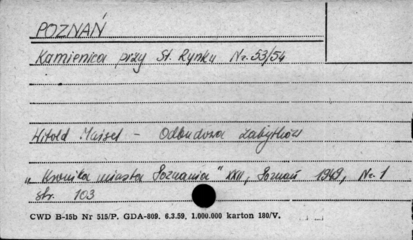 POZNAŃ
Kamienica przy St. Rynku Nr. 53/54
Witold Maisel - Odbudowa zabytków
"Kronika miasta Poznania" XXII, Poznań 1949, Nr. 1
str. 103
CWD B-15b Nr 515/P. GDA-809. 6.3.59. 1.000.000 karton 180/V.